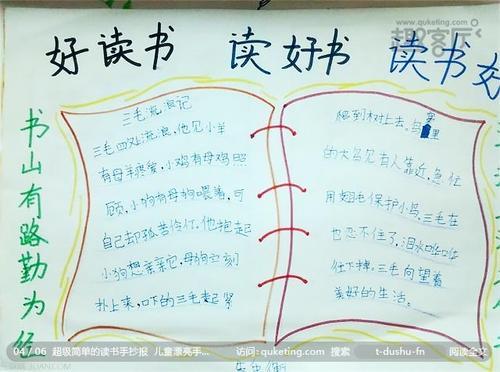 www.quketing.com
趣客厅
好读书 读好书 读书好
书山有路勤为径
三毛流浪记
三毛四处流浪,他见小羊
有母羊疼爱,小鸡有母鸡照
顾,小狗有母狗喂着,可
自己却孤苦伶仃,他抱起
小狗想亲亲它,母狗立刻
扑上来,吓的三毛赶紧
爬到树上去。鸟窝里
的大鸟见有人靠近,急忙
用翅膀保护小鸟,三毛在
也忍不住了,泪水哗哗
往下掉。三毛向望着
美好的生活。
04 / 06 超级简单的读书手抄报 儿童漂亮手... 访问:quketing.com 搜索 t-dushu-fn 阅读全文